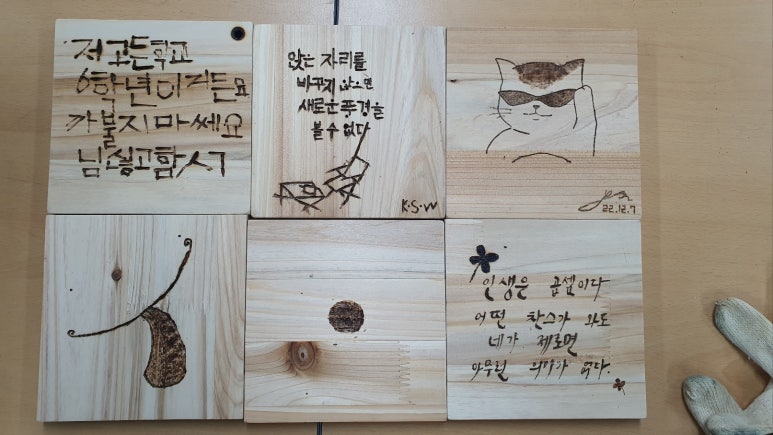 저 고든학교
6학년이거든요
까불지마쎄요
님싫고함시
앉은 자리를
바꾸지 않으면
새로운 풍경을
볼 수 없다
K.S.W
22.12.7
인생은 곱셈이다
어떤 찬스가 와도
네가 제로면
아무런 의미가 없다.